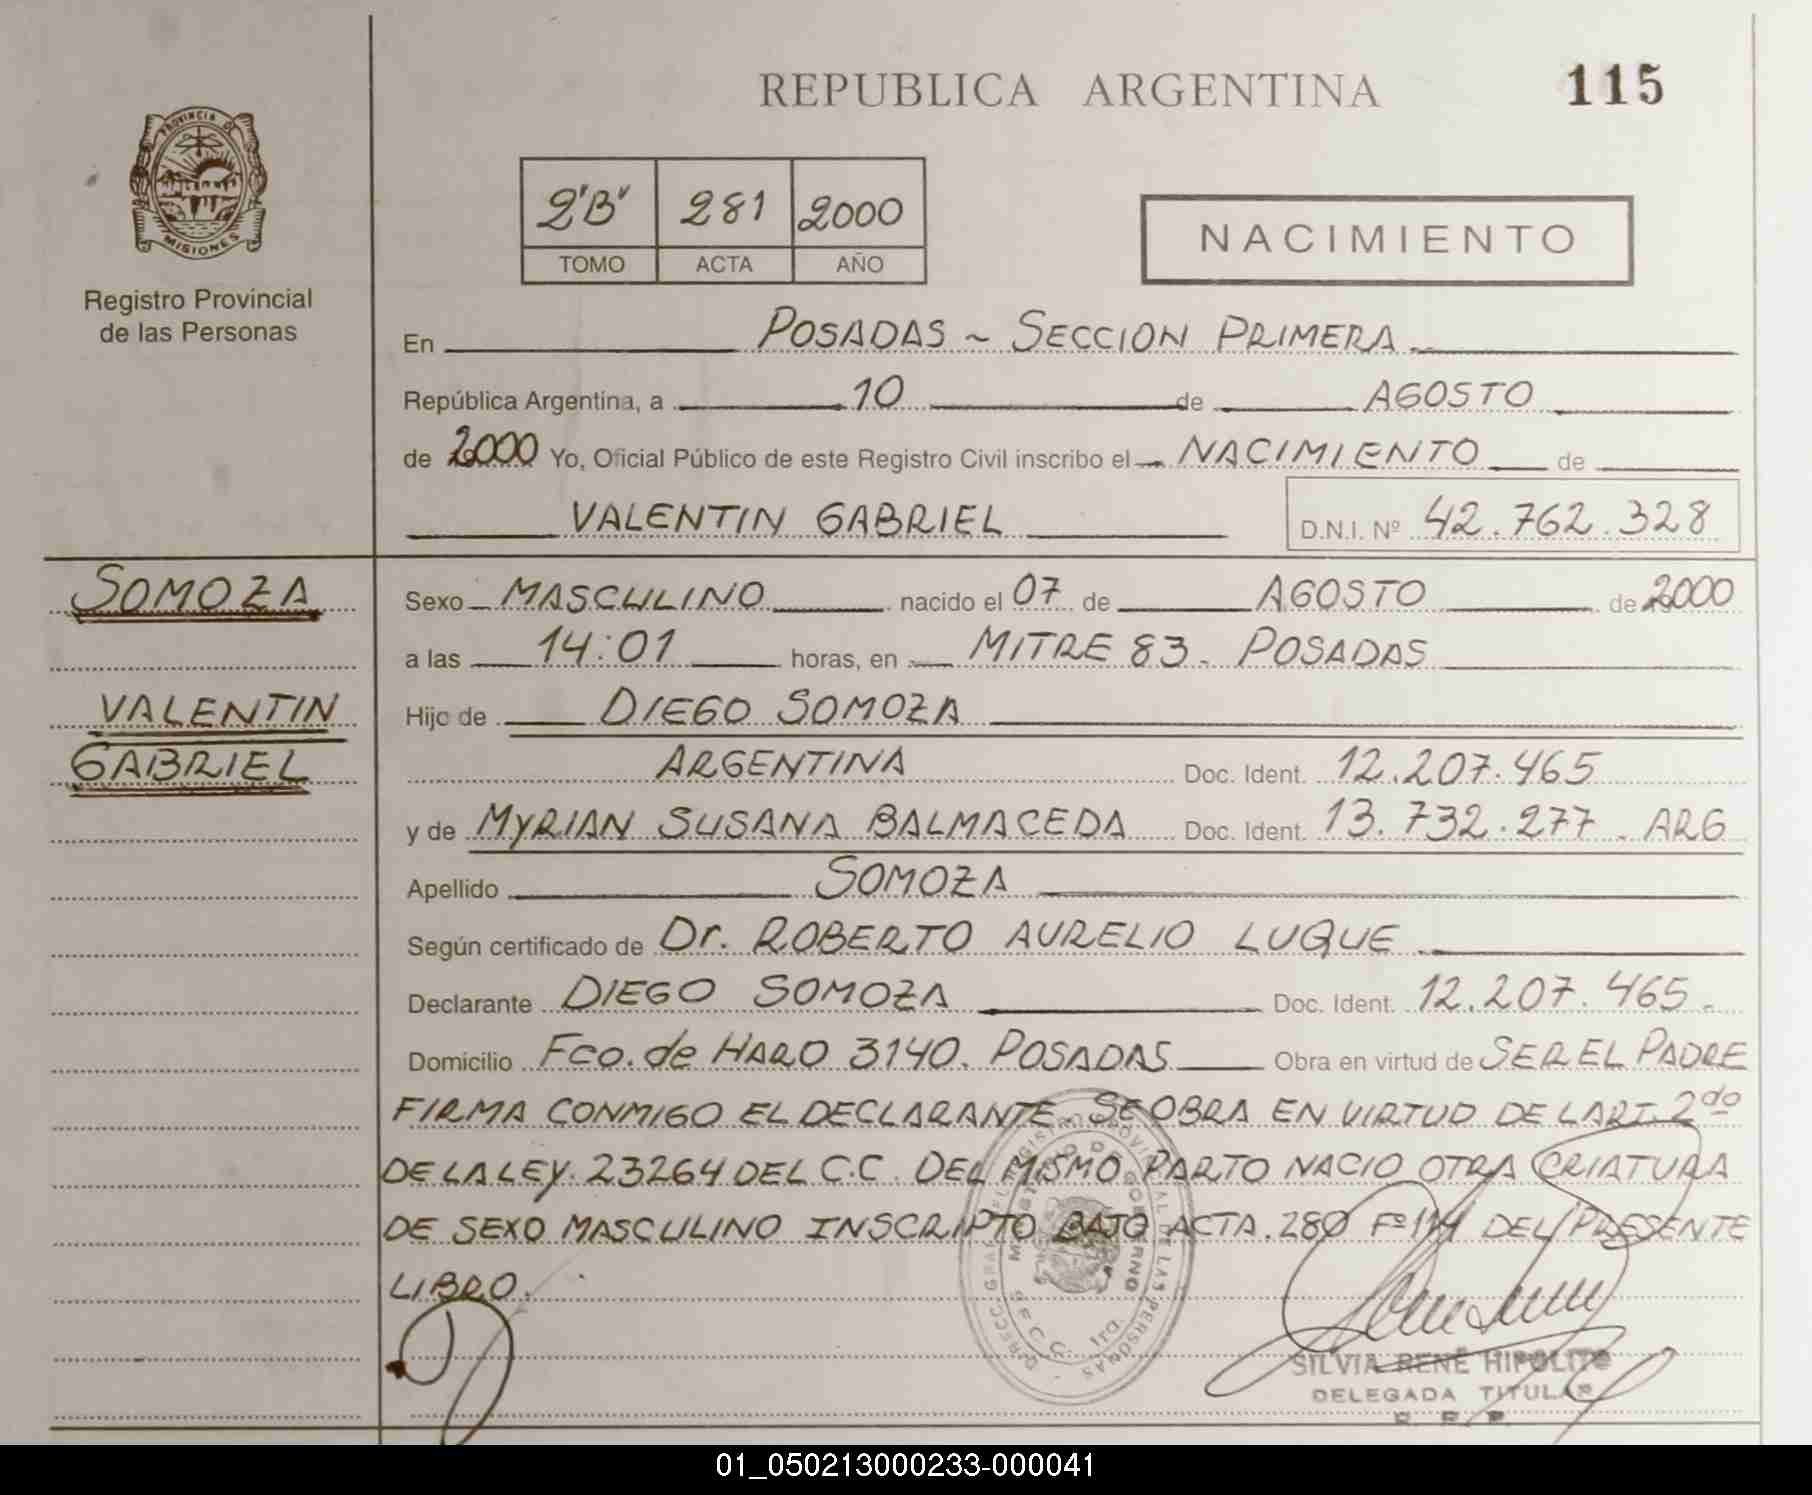 REPUBLICA ARGENTINA 115
PROVINCIA DE
MISIONES
Registro Provincial
de las Personas
2"B" 281 2000
TOMO ACTA AÑO
NACIMIENTO
En POSADAS ~ SECCION PRIMERA
República Argentina, a 10 de AGOSTO
de 2000 Yo, Oficial Público de este Registro Civil inscribo el NACIMIENTO de
VALENTIN GABRIEL D.N.I. Nº 42.762.328
SOMOZA
VALENTIN
GABRIEL
Sexo MASCULINO nacido el 07 de AGOSTO de 2000
a las 14:01 horas, en MITRE 83. POSADAS
Hijo de DIEGO SOMOZA
ARGENTINA Doc. Ident. 12.207.465
y de MYRIAN SUSANA BALMACEDA Doc. Ident. 13.732.277. ARG
Apellido SOMOZA
Según certificado de Dr. ROBERTO AURELIO LUQUE
Declarante DIEGO SOMOZA Doc. Ident. 12.207.465.
Domicilio Fco. de HARO 3140. POSADAS Obra en virtud de SER EL PADRE
FIRMA CONMIGO EL DECLARANTE. SE OBRA EN VIRTUD DEL ART. 2do
DE LA LEY. 23264 DEL C.C. DEL MISMO PARTO NACIO OTRA CRIATURA
DE SEXO MASCULINO INSCRIPTO BAJO ACTA. 280 Fº 114 DEL PRESENTE
LIBRO.
SILVIA RENÉ HIPOLITO
DELEGADA TITULAR
01_050213000233-000041